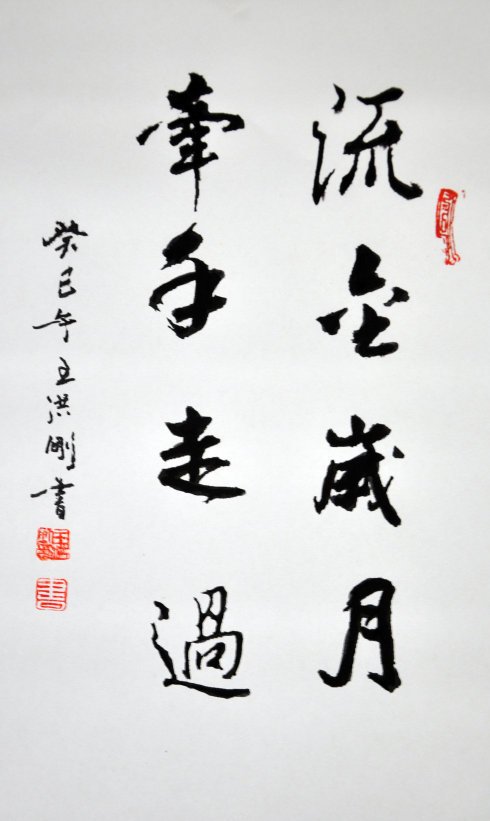 流金歲月
牽手走過
癸巳年王洪剛書
書